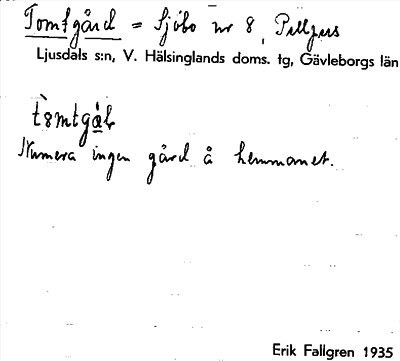 Tomtgård = Sjöbo nr 8, Pellpers
Ljusdals s:n, V. Hälsinglands doms. tg, Gävleborgs län
Numera ingen gård å hemmanet.
Erik Fallgren 1935